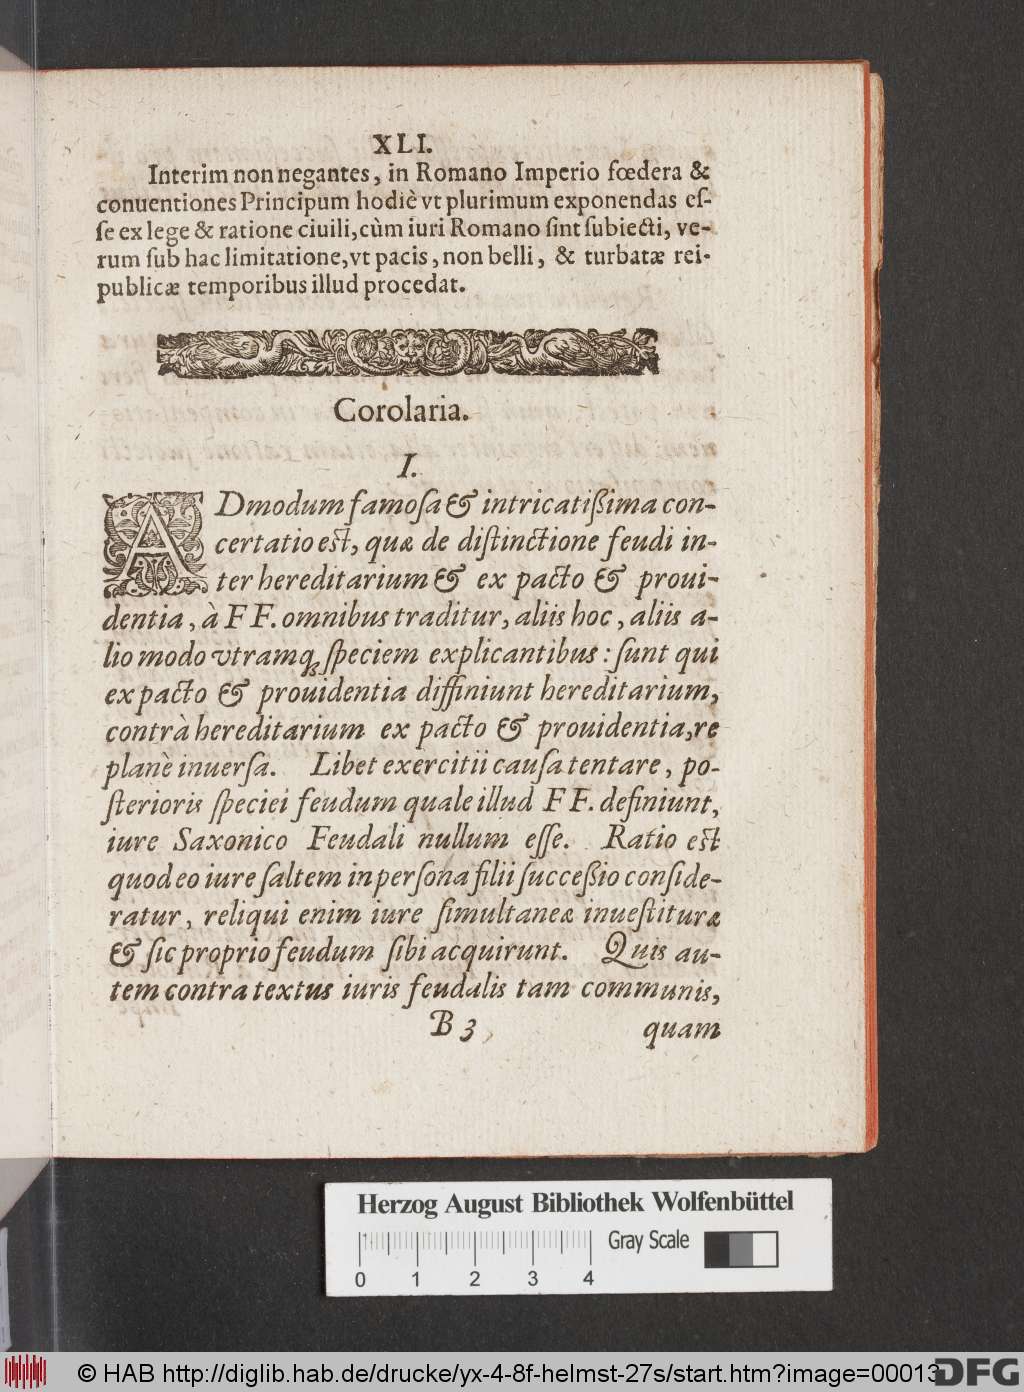 XLI.
Interim non negantes, in Romano Imperio fœdera &
conuentiones Principum hodiè vt plurimum exponendas eſ-
ſe ex lege & ratione ciuili, cùm iuri Romano ſint ſubiecti, ve-
rum ſub hac limitatione, vt pacis, non belli, & turbatæ rei-
publicæ temporibus illud procedat.
Corolaria.
I.
ADmodum famoſa & intricatißima con-
certatio est, quæ de diſtinctione feudi in-
ter hereditarium & ex pacto & proui-
dentia, à FF. omnibus traditur, aliis hoc, aliis a-
lio modo vtramq; ſpeciem explicantibus: ſunt qui
ex pacto & prouidentia diffiniunt hereditarium,
contrà hereditarium ex pacto & prouidentia, re
planè inuerſa. Libet exercitii cauſa tentare, po-
ſterioris ſpeciei feudum quale illud FF. definiunt,
iure Saxonico Feudali nullum eſſe. Ratio est
quod eo iure ſaltem in perſona filii ſucceßio conſide-
ratur, reliqui enim iure ſimultaneæ inueſtituræ
& ſic proprio feudum ſibi acquirunt. Quis au-
tem contra textus iuris feudalis tam communis,
B 3
quam
Herzog August Bibliothek Wolfenbüttel
Gray Scale
0 1 2 3 4
© HAB http://diglib.hab.de/drucke/yx-4-8f-helmst-27s/start.htm?image=00013
DFG